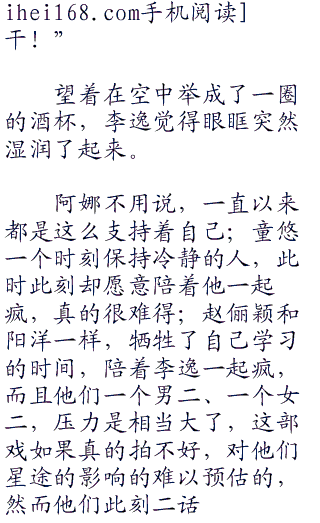 ihei168.com手机阅读]
干！”
望着在空中举成了一圈
的酒杯，李逸觉得眼眶突然
湿润了起来。
阿娜不用说，一直以来
都是这么支持着自己；童悠
一个时刻保持冷静的人，此
时此刻却愿意陪着他一起
疯，真的很难得；赵俪颖和
阳洋一样，牺牲了自己学习
的时间，陪着李逸一起疯，
而且他们一个男二、一个女
二，压力是相当大了，这部
戏如果真的拍不好，对他们
星途的影响的难以预估的，
然而他们此刻二话